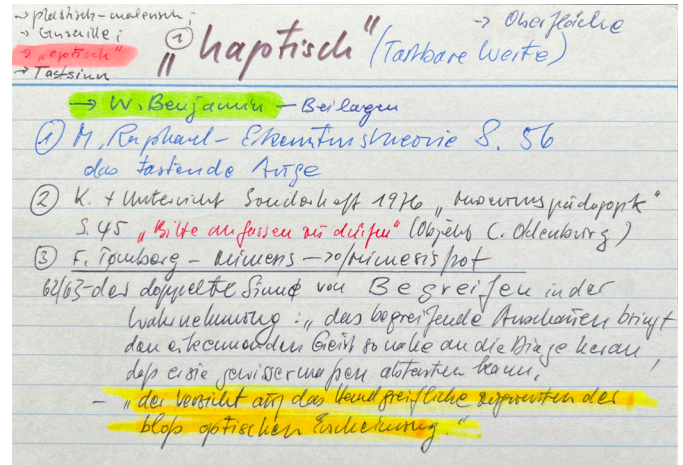 → plastisch-malerisch;
→ Gurlitt;
→ "optisch"
→ Tastsinn
① "haptisch" (Tastbare Werte)
→ Oberfläche
→ W. Benjamin – Beilagen
① M. Raphael – Erkenntnistheorie S. 56
das tastende Auge
② K. + Unterricht Sonderheft 1976 "Museumspädagogik"
S. 45 "Bitte anfassen zu dürfen" (Objekt C. Oldenburg)
③ F. Tomberg – mimesis
62/63 – der doppelte Sinn von Begreifen in der
Wahrnehmung: "das begreifende Anschauen bringt
den erkennenden Geist so nahe an die Dinge heran,
daß er sie gewissermaßen abtasten kann.
– "der Verzicht auf das Handgreifliche zugunsten der
bloß optischen Erscheinung."